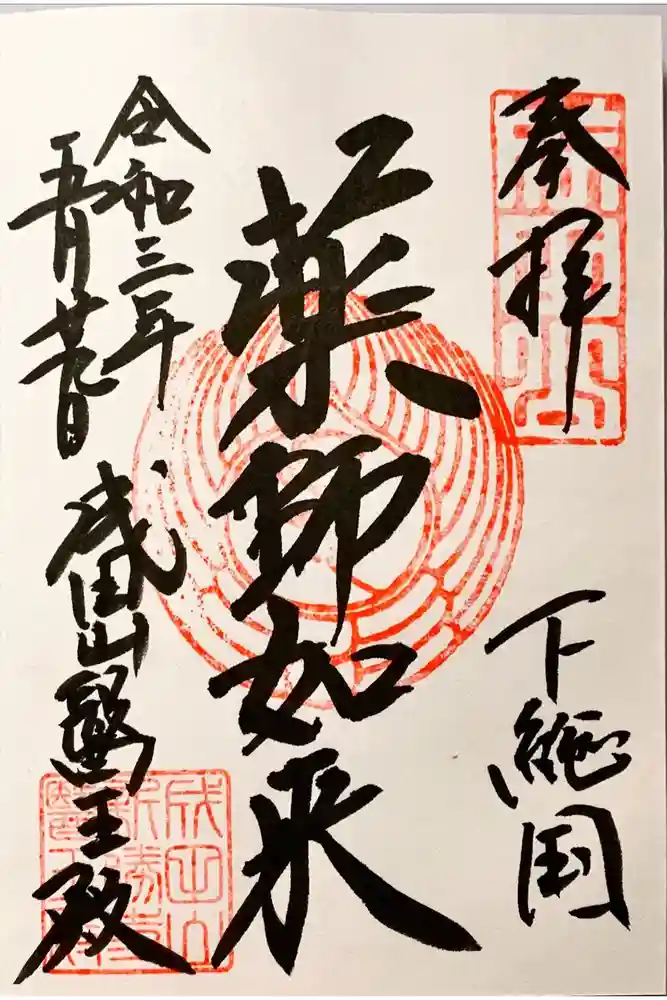 奉拝
下總国
薬師如来
令和三年
五月廿九日
成田山醫王殿
成田山
新勝寺